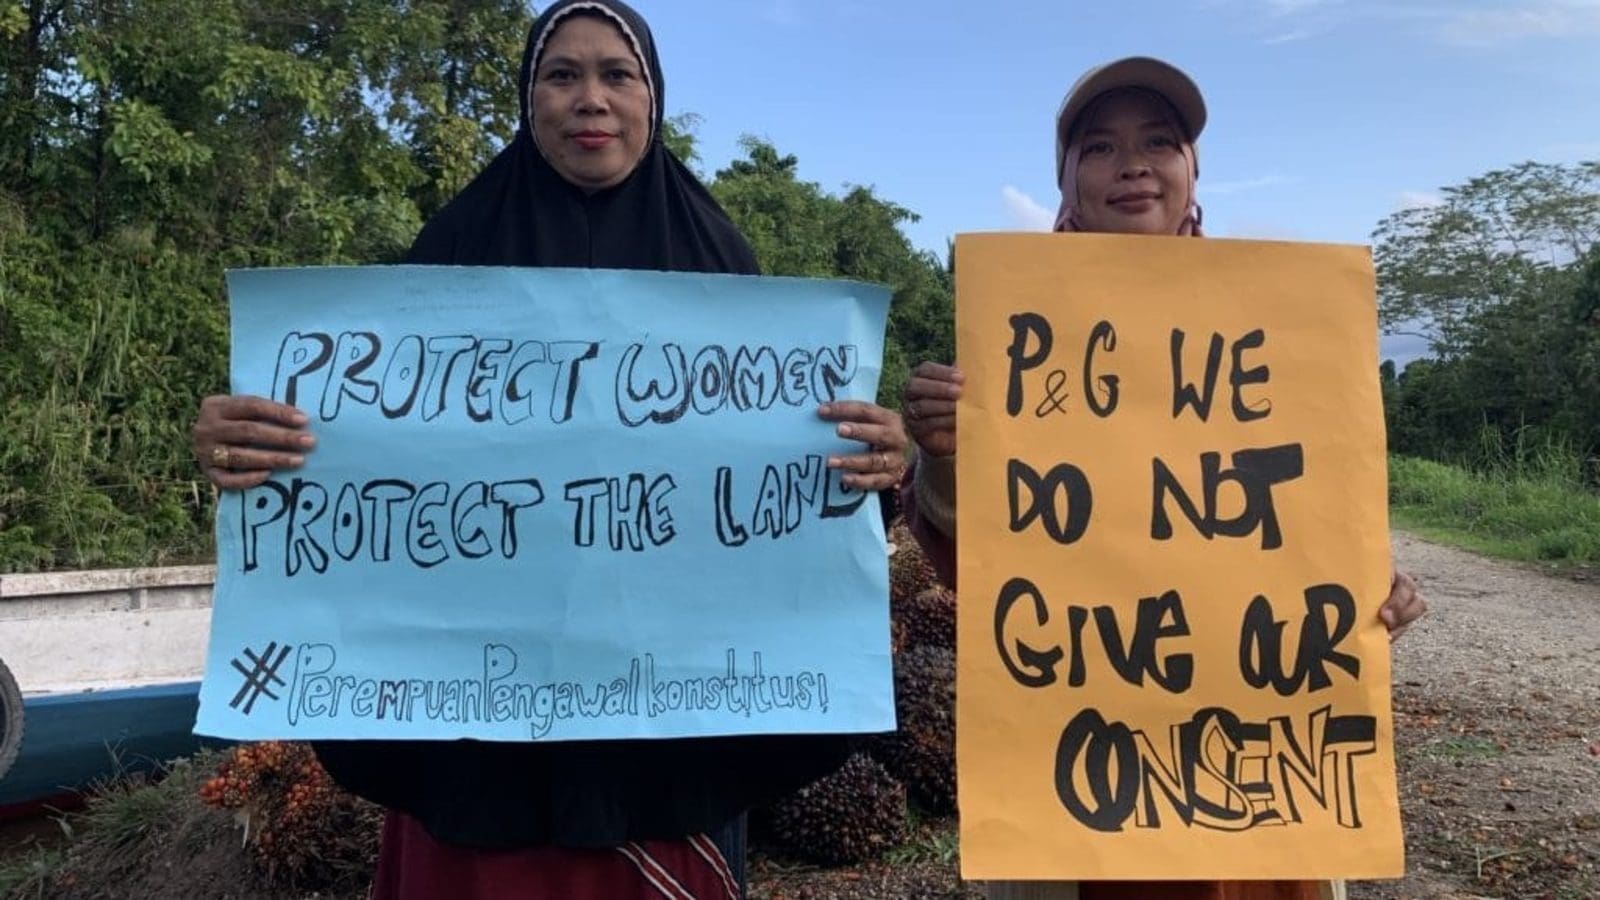 PROTECT WOMEN
PROTECT THE LAND
#PerempuanPengawalkonstitusi
P&G WE
DO NOT
GIVE OUR
CONSENT